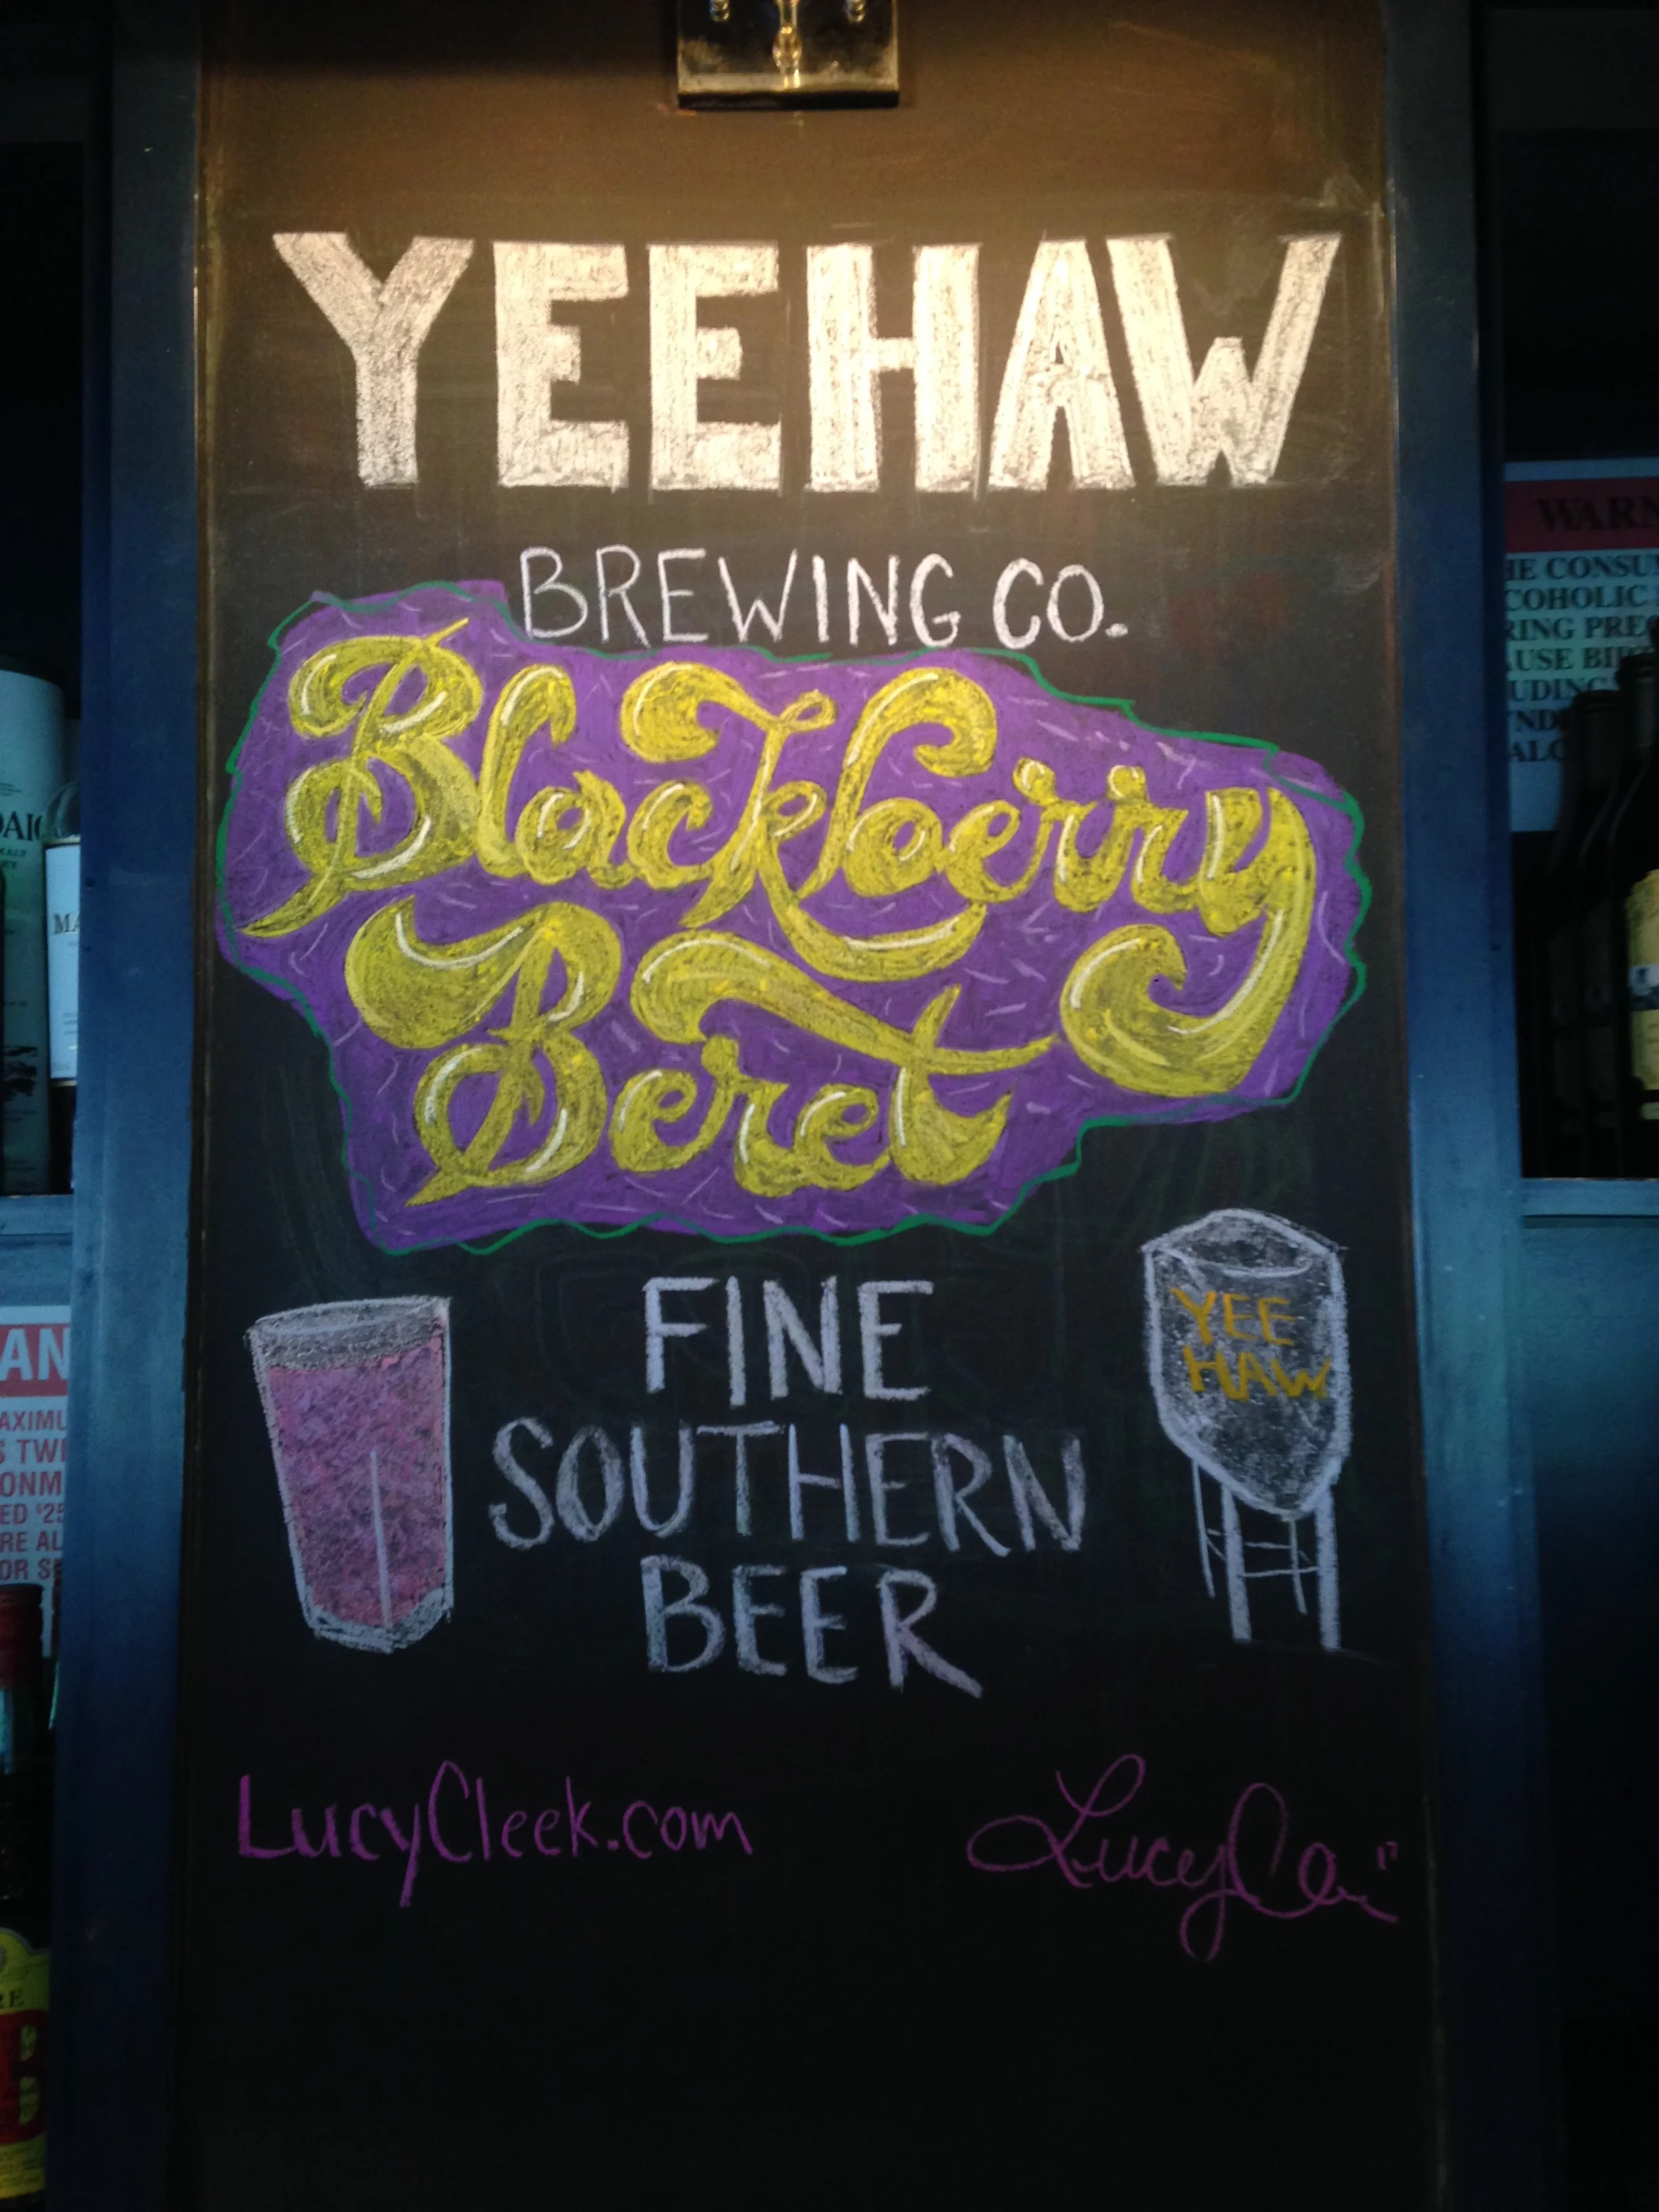 YEEHAW
BREWING CO.
Blackberry
Beret
FINE
SOUTHERN
BEER
YEE
HAW
LucyCleek.com
WARN
HE CONSU
COHOLIC
RING PRE
AUSE BI
UDING
AN
AXIMU
S TWE
ONM
ED $25
RE AL
OR S
MA
RE